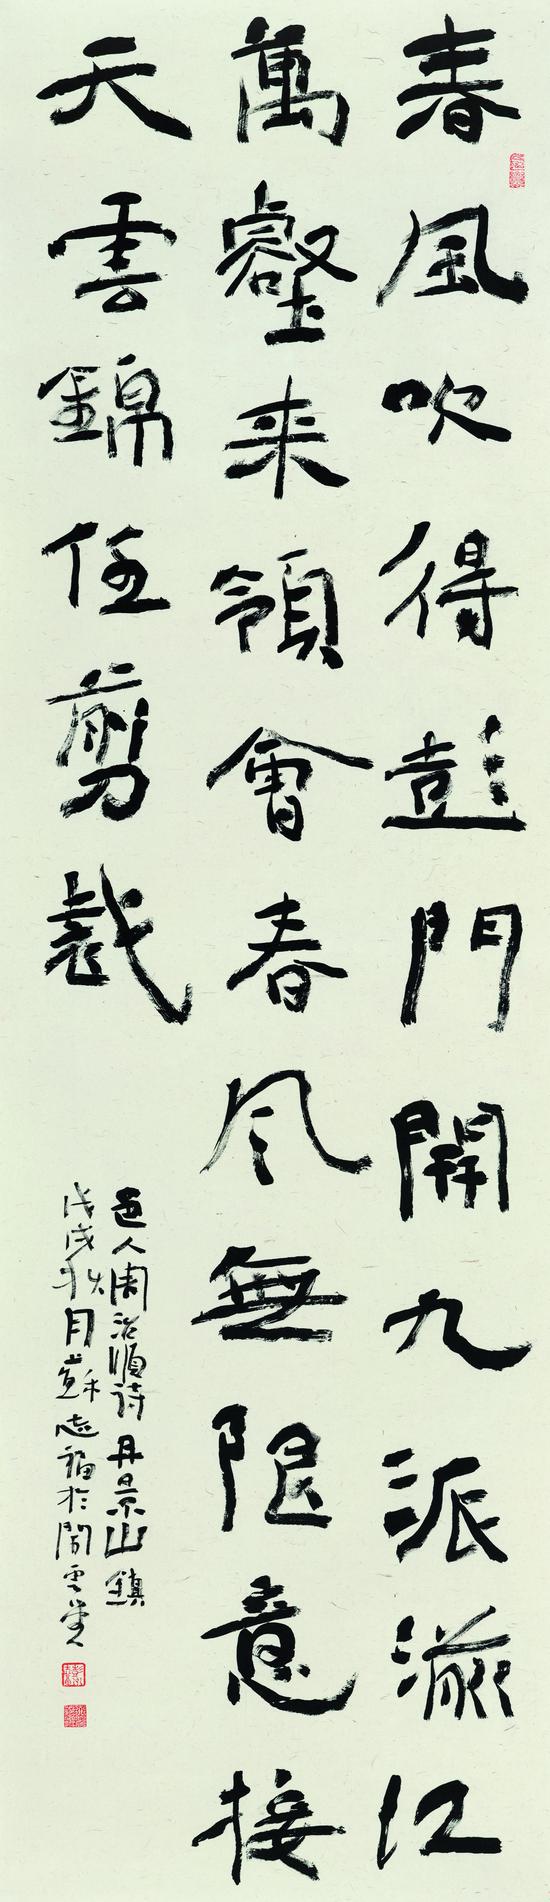 春風吹得彭門開九派滋江
萬壑来領會春风無限意接
天雲錦任剪裁
邑人周治順诗丹景山鎮
戊戌秋月蘇志福於閒雲堂